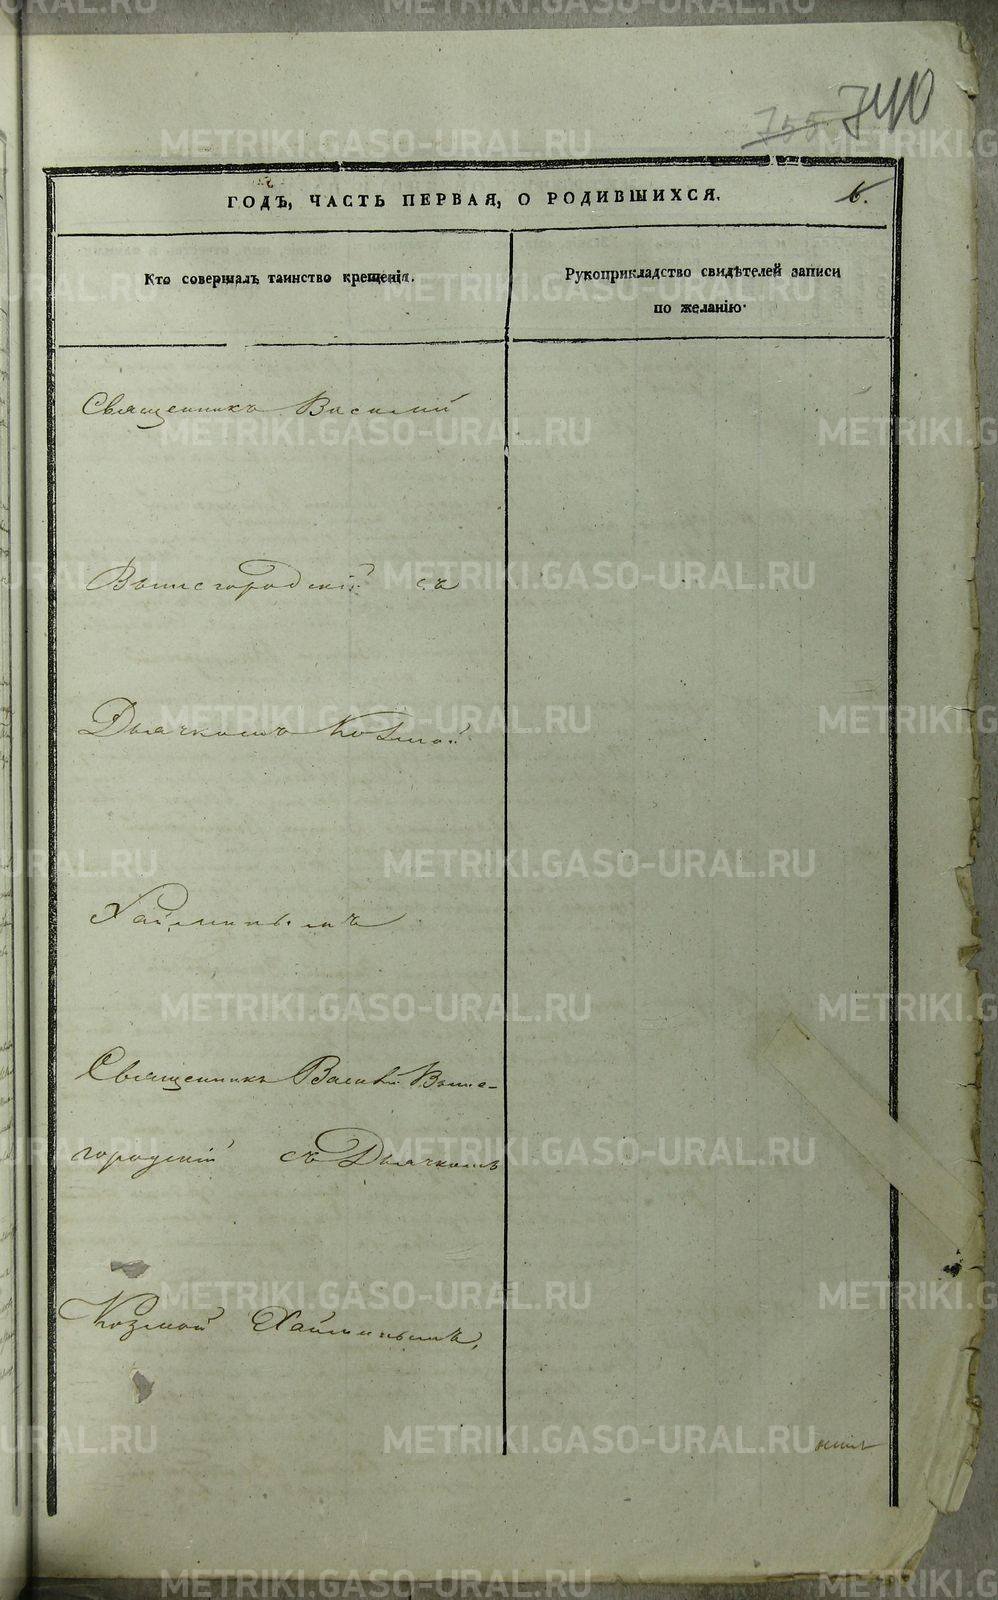 755 740
ГОДЪ, ЧАСТЬ ПЕРВАЯ, О РОДИВШИХСЯ.
6.
Кто совершалъ таинство крещенія.
Рукоприкладство свидѣтелей записи
по желанію.
Священникъ Василий
Вышегородский съ
Дьячкомъ Козмой
Хайминымъ
Священникъ Василий Выше-
городский съ Дьячкомъ
Козмой Хайминымъ,
METRIKI.GASO-URAL.RU